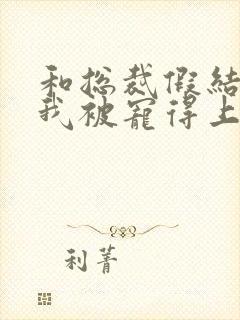 和总裁假结
我被宠得上
利菁